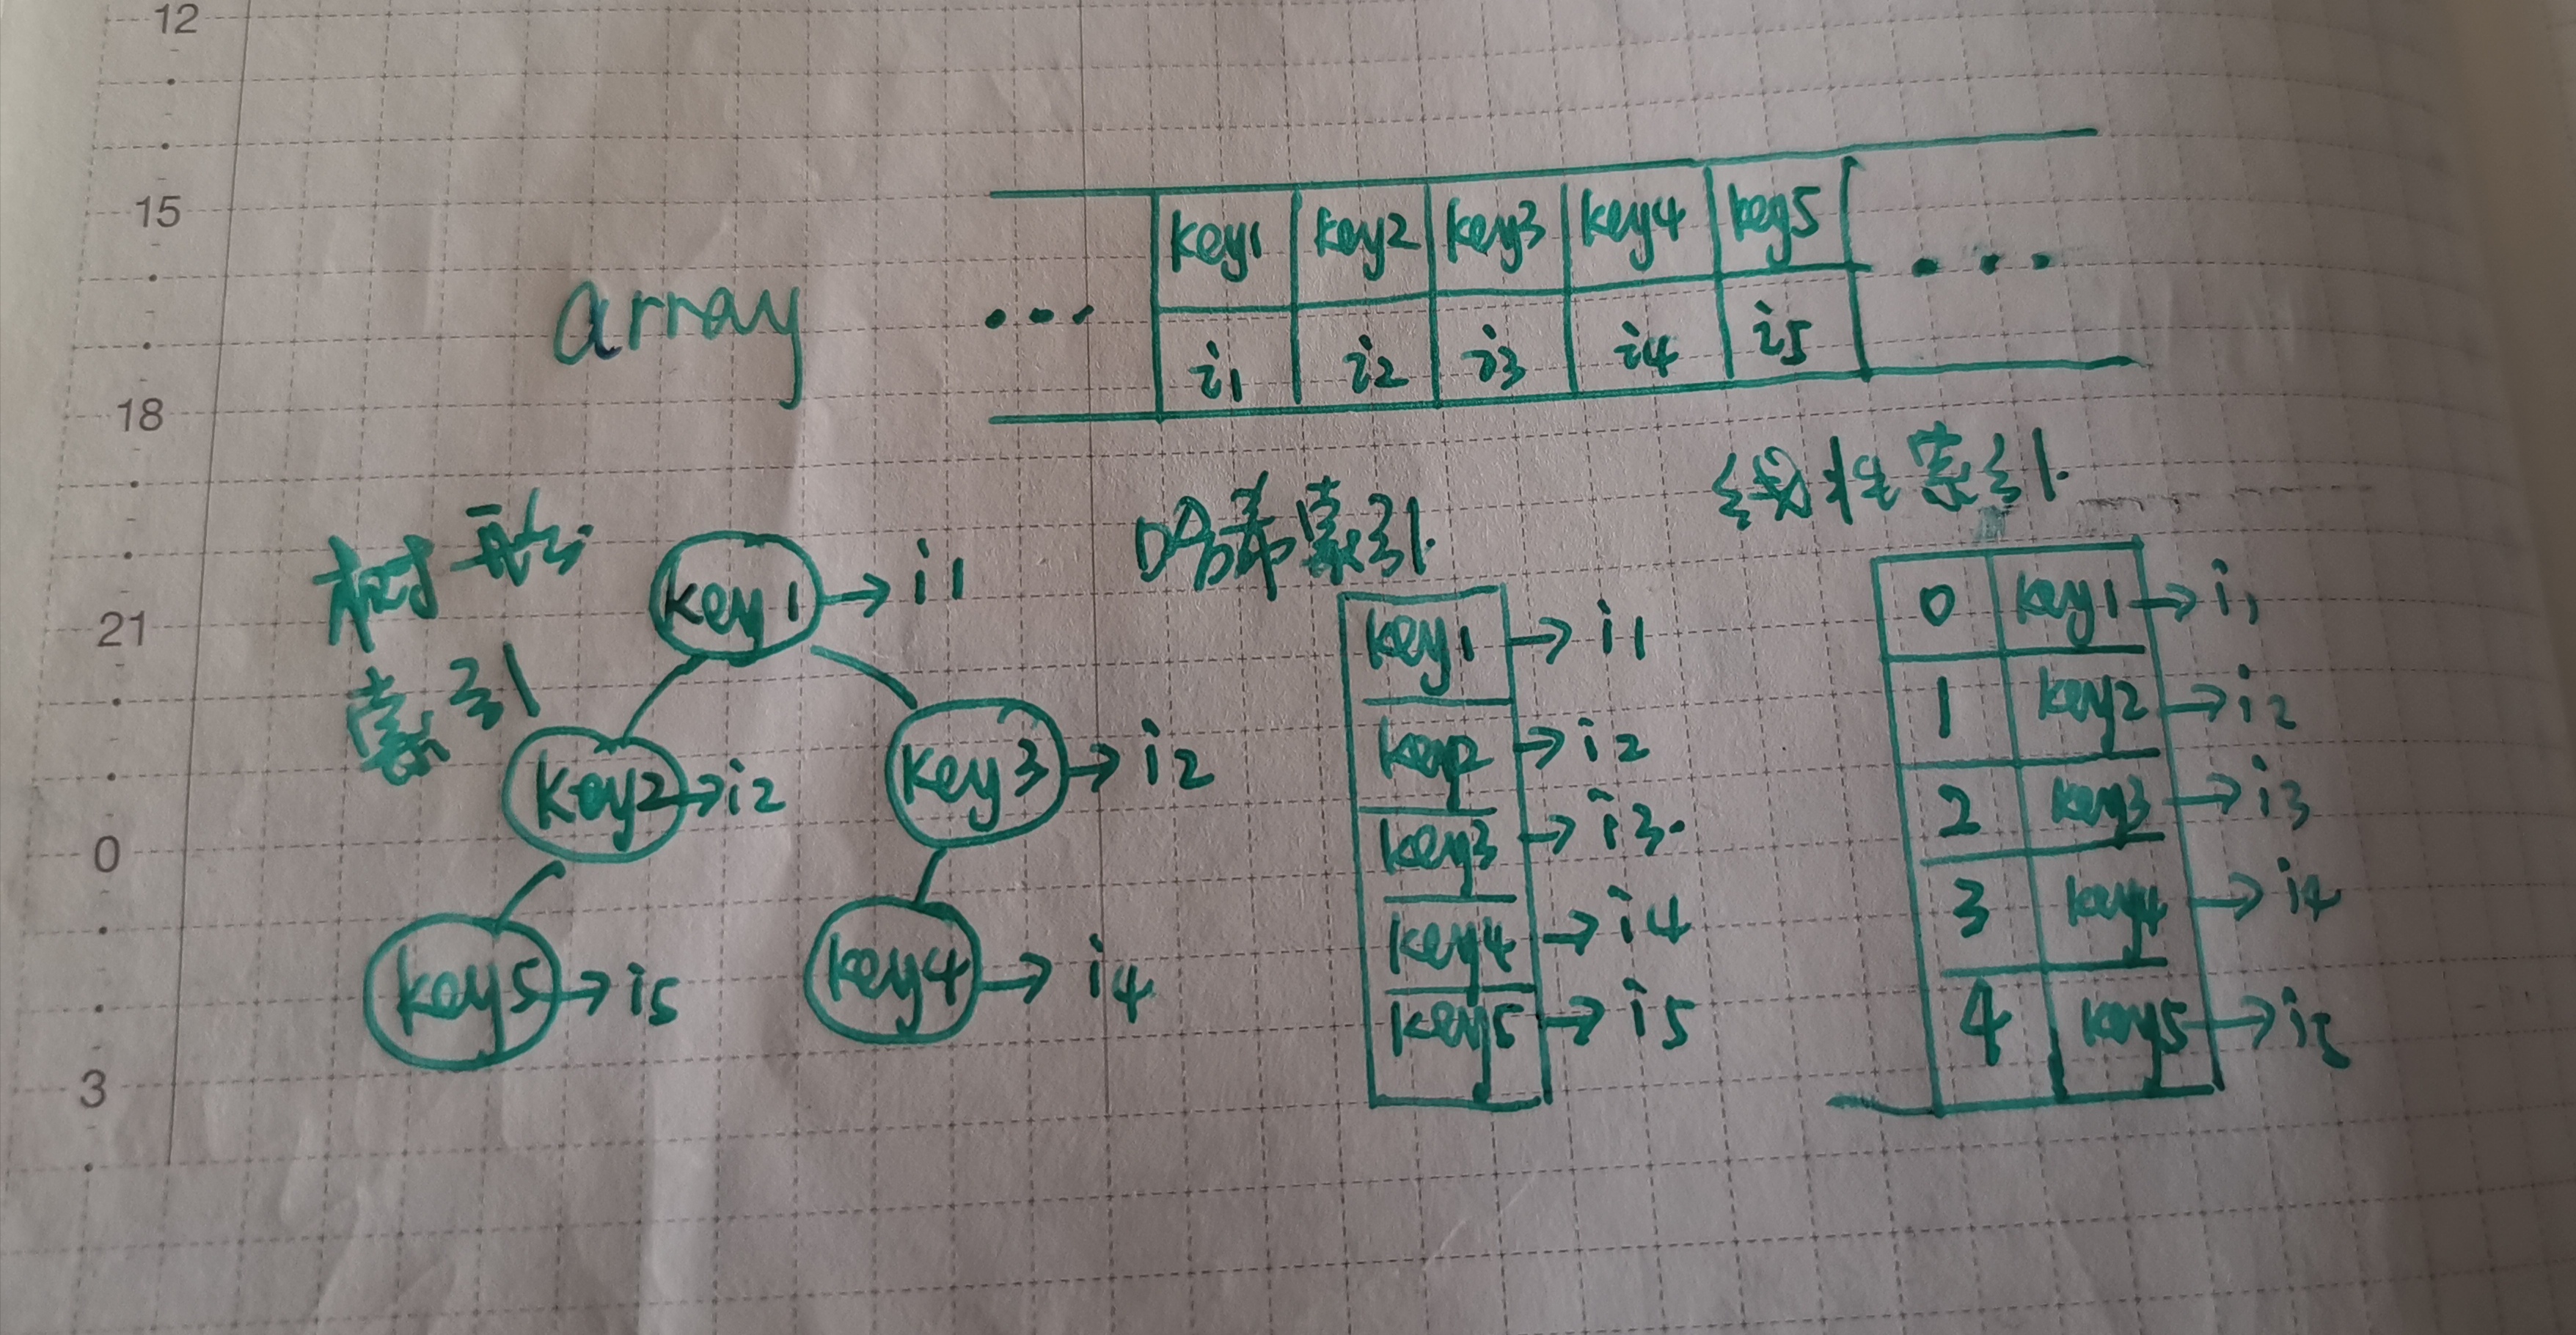 12
15
18
21
0
3
array
... key1 key2 key3 key4 key5 ...
i1 i2 i3 i4 i5
树形
索引
key1 → i1
key2 → i2
key3 → i2
key5 → i5
key4 → i4
哈希索引
key1 → i1
key2 → i2
key3 → i3
key4 → i4
key5 → i5
线性索引
0 key1 → i1
1 key2 → i2
2 key3 → i3
3 key4 → i4
4 key5 → i5